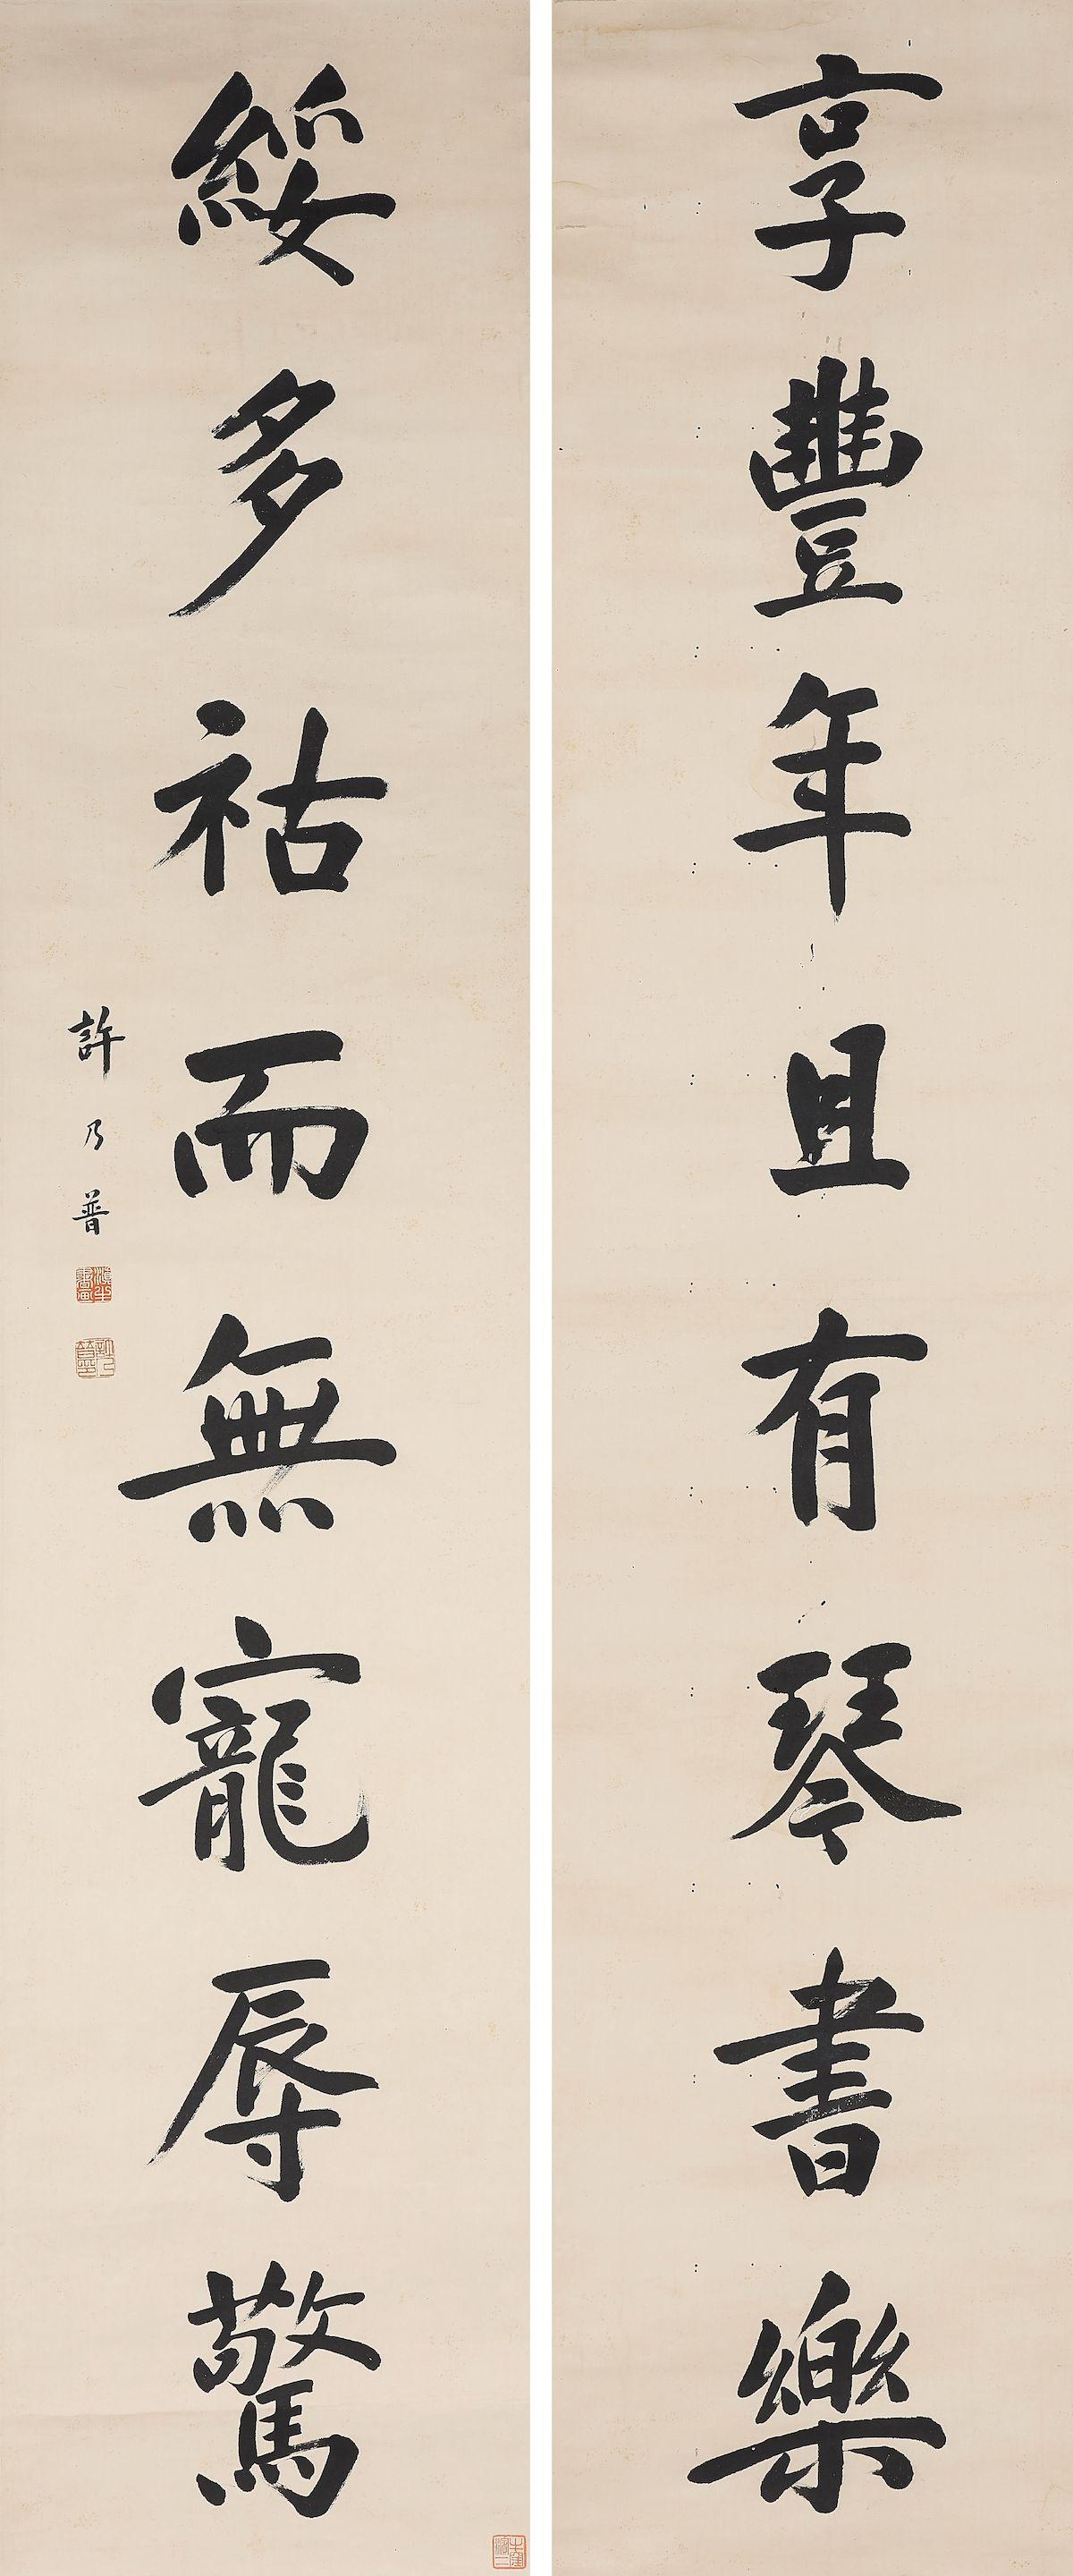 享豐年且有琴書樂
綏多祜而無寵辱驚
許乃普